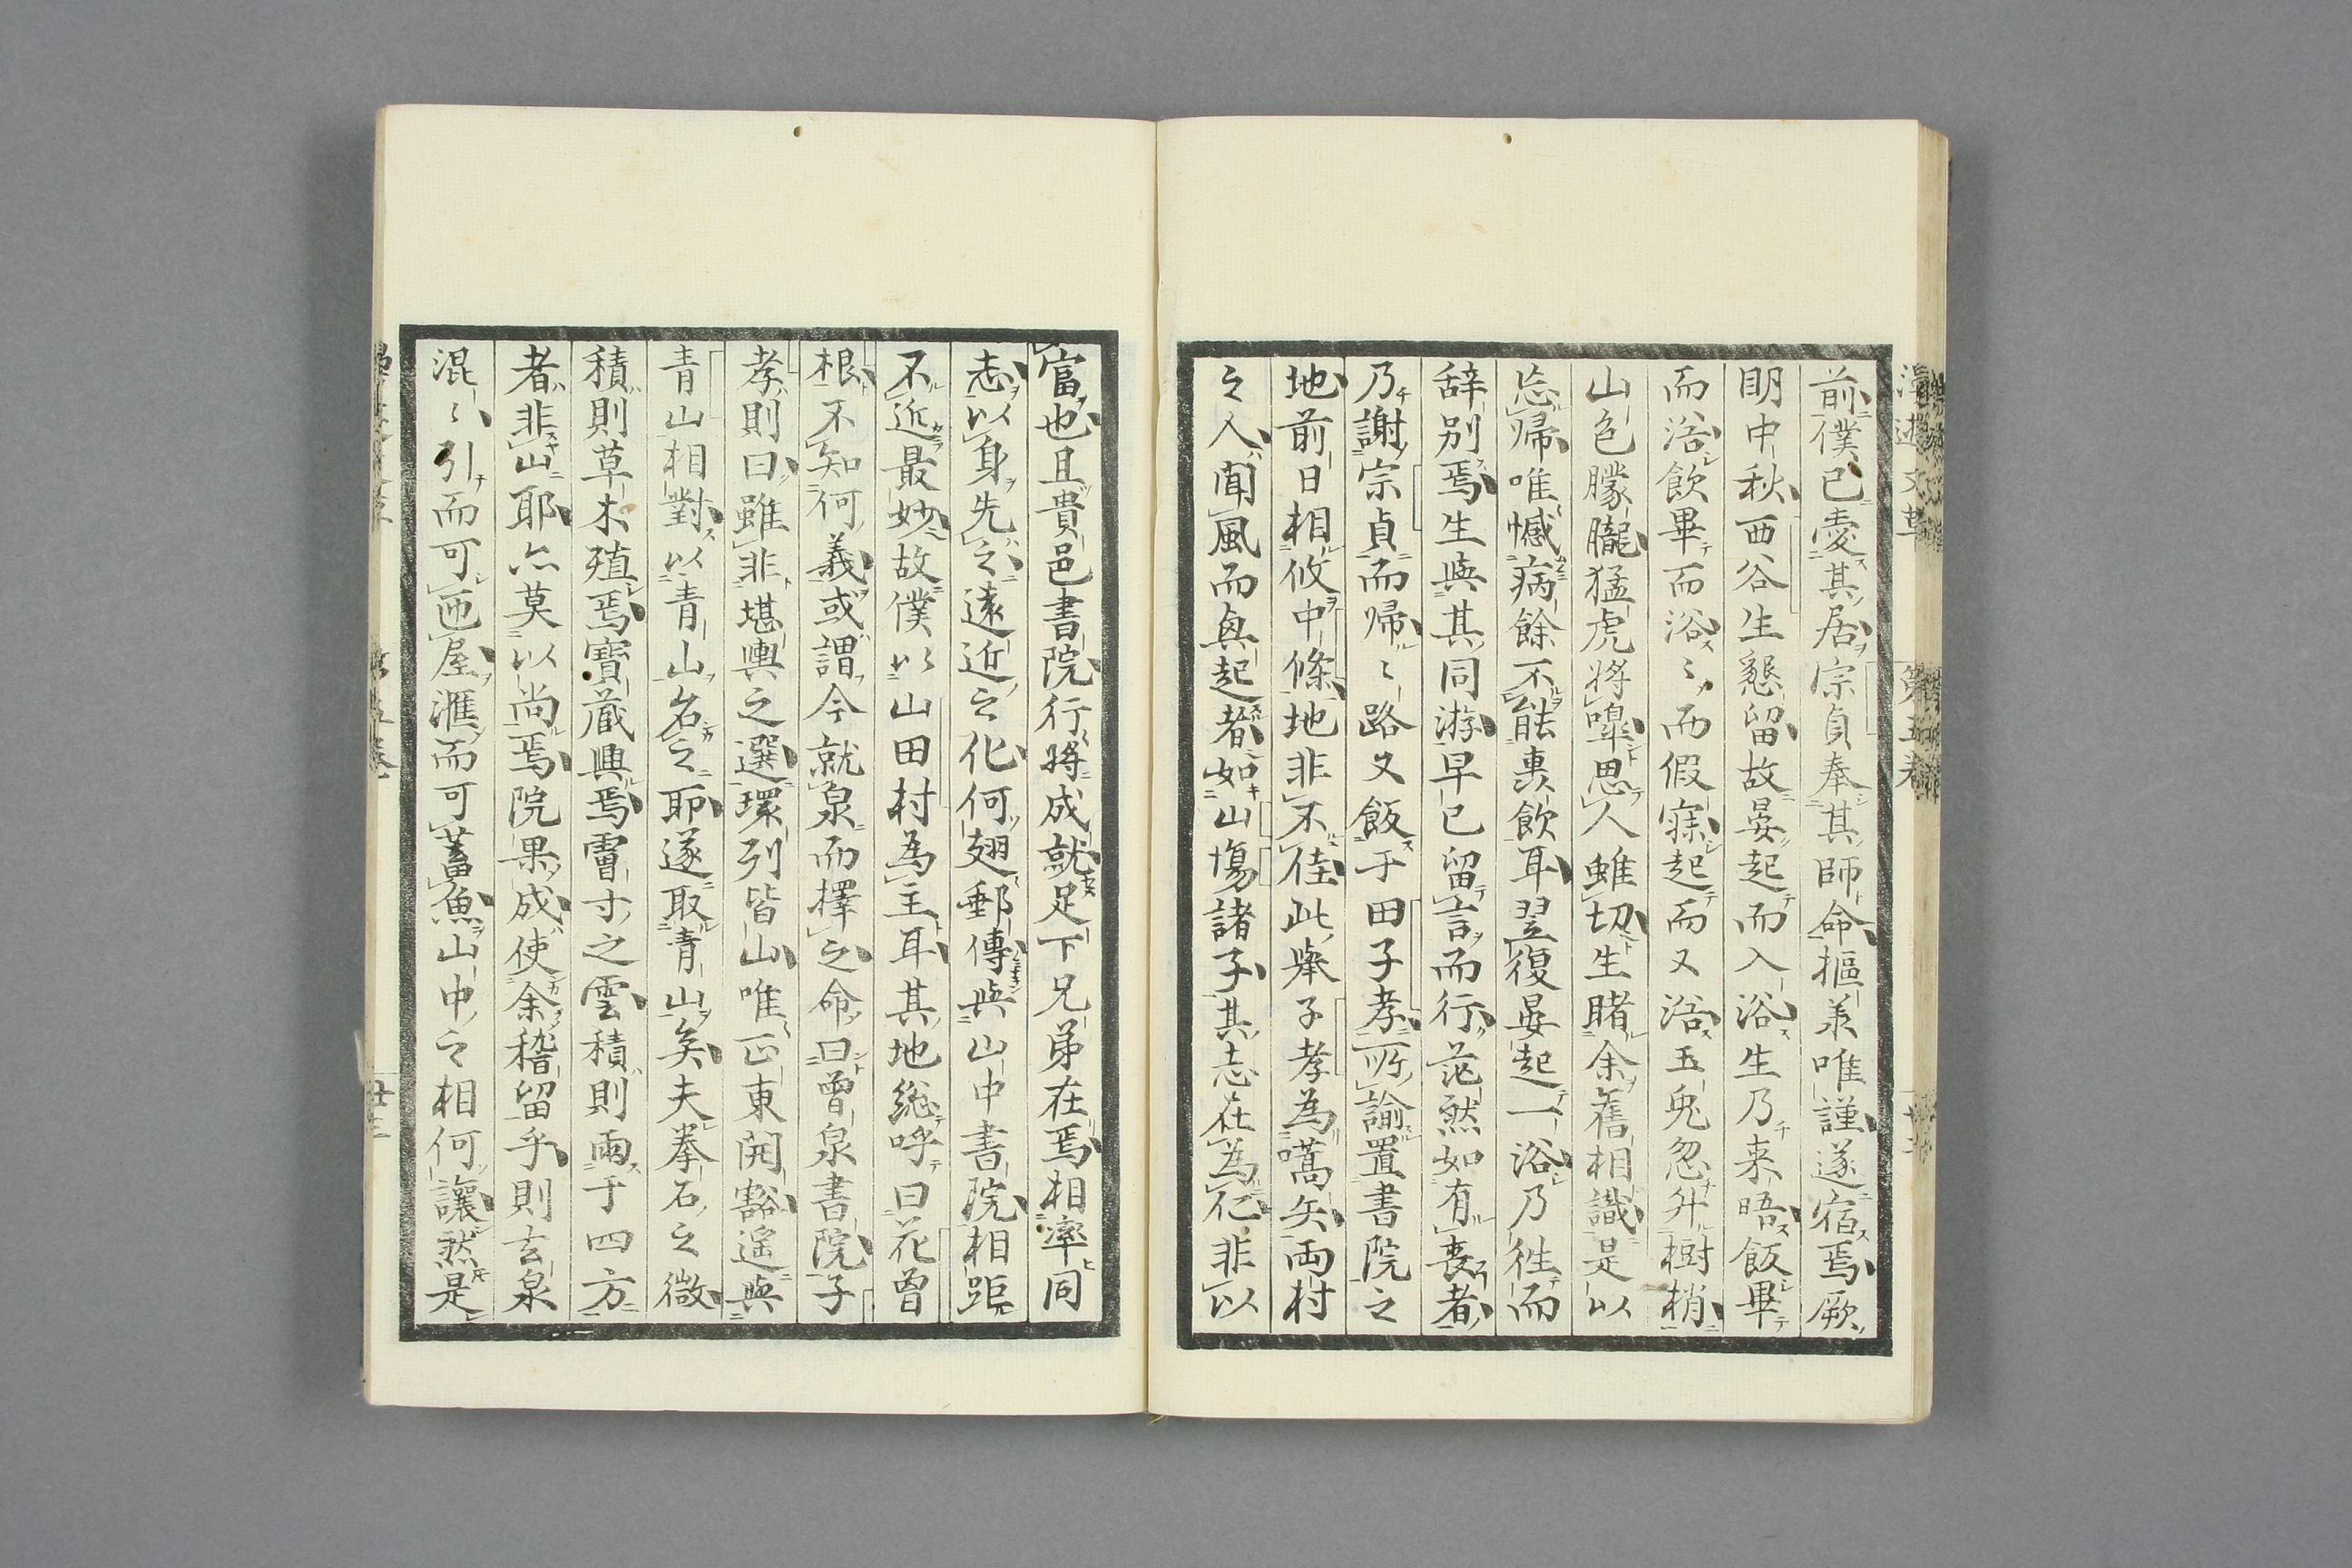 前僕已愛其居宗貞奉其師命摳羕唯謹遂宿焉厥
明中秋西谷生懇留故晏起而入浴生乃来晤飯畢
而浴飲畢而浴〻而假寐起而又浴玉兎忽升樹梢
山色朦朧猛虎将嘷思人雖切生睹余舊相識是以
忘歸唯憾病餘不能轟飲耳翌復晏起一浴乃徃而
辞别焉生與其同游早已留言而行茫然如有喪者
乃謝宗貞而歸〻路又飯于田子孝所諭置書院之
地前日相攸中條地非不佳此擧子孝為嚆矢両村
之人聞風而興起者如山塲諸子其志在為仁非以
富也且貴邑書院行将成就足下兄弟在焉相率同
志以身先之遠近之化何翅郵傳與山中書院相距
不近最妙故僕以山田村為主耳其地総呼曰花曽
根不知何義或謂今就泉而擇之命曰曽泉書院子
孝則曰雖非堪輿之選環列皆山唯正東開豁遥與
青山相對以青山名之耶遂取青山矣夫拳石之微
積則草木殖焉寶蔵興焉膚寸之雲積則雨于四方
者非山耶亦莫以尚焉院果成使余稽留乎則玄泉
混〻引而可匝屋滙而可蓄魚山中之相何讓然是